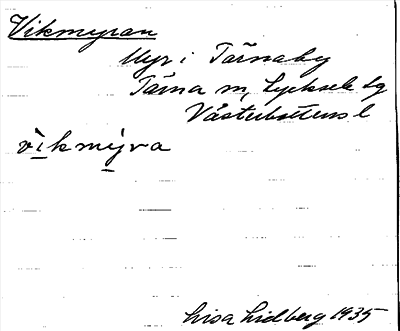 Vikmyran
Myr i Tärnaby
Tärna sn, Lycksele lg
Västerbottens l
vìkmỳra
Lisa Lidberg 1935